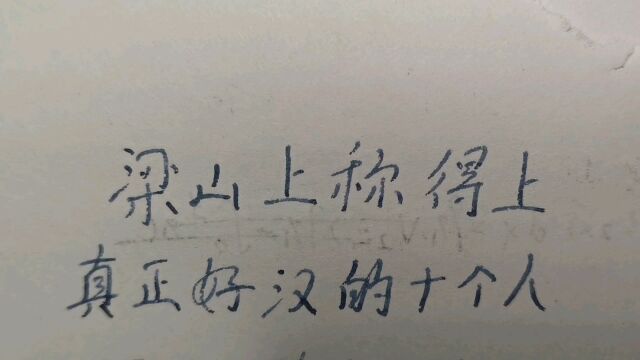 梁山上称得上
真正好汉的十个人